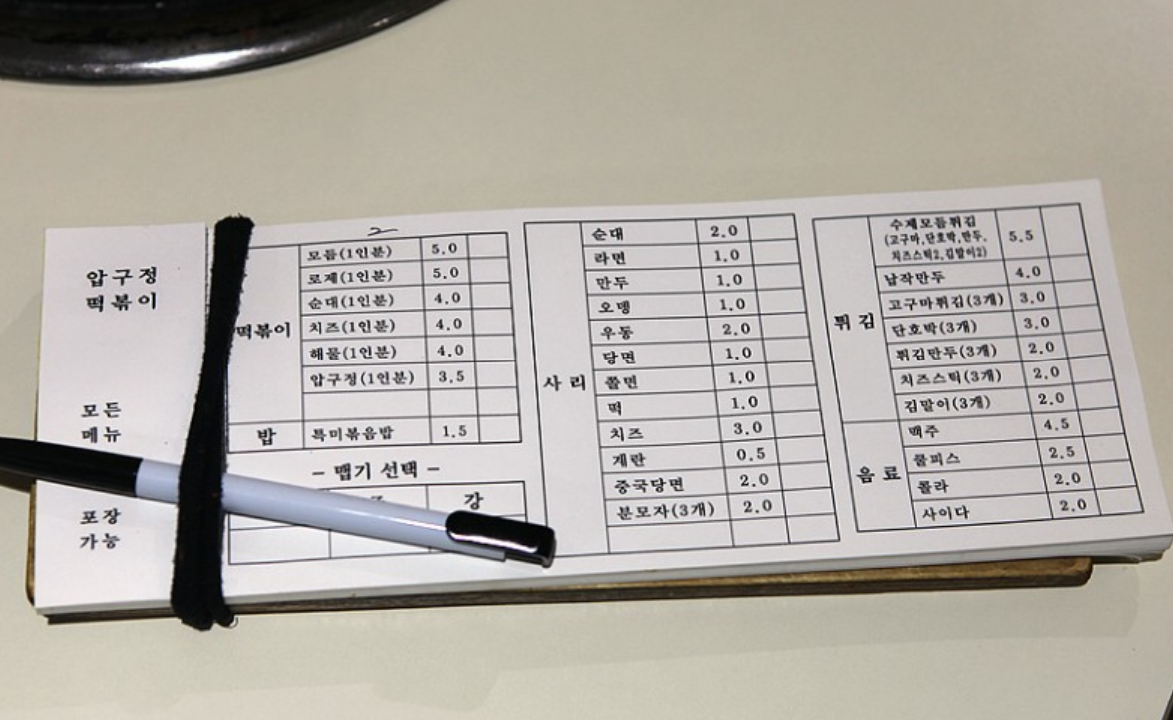 압구정
떡볶이
모든
메뉴
포장
가능
2
떡볶이
모듬(1인분) 5.0
로제(1인분) 5.0
순대(1인분) 4.0
치즈(1인분) 4.0
해물(1인분) 4.0
압구정(1인분) 3.5
밥 특미볶음밥 1.5
– 맵기 선택 –
강
사리
순대 2.0
라면 1.0
만두 1.0
오뎅 1.0
우동 2.0
당면 1.0
쫄면 1.0
떡 1.0
치즈 3.0
계란 0.5
중국당면 2.0
분모자(3개) 2.0
튀김
수제모듬튀김
(고구마,단호박,만두,
치즈스틱2,김말이2) 5.5
납작만두 4.0
고구마튀김(3개) 3.0
단호박(3개) 3.0
튀김만두(3개) 2.0
치즈스틱(3개) 2.0
김말이(3개) 2.0
음료
맥주 4.5
쿨피스 2.5
콜라 2.0
사이다 2.0